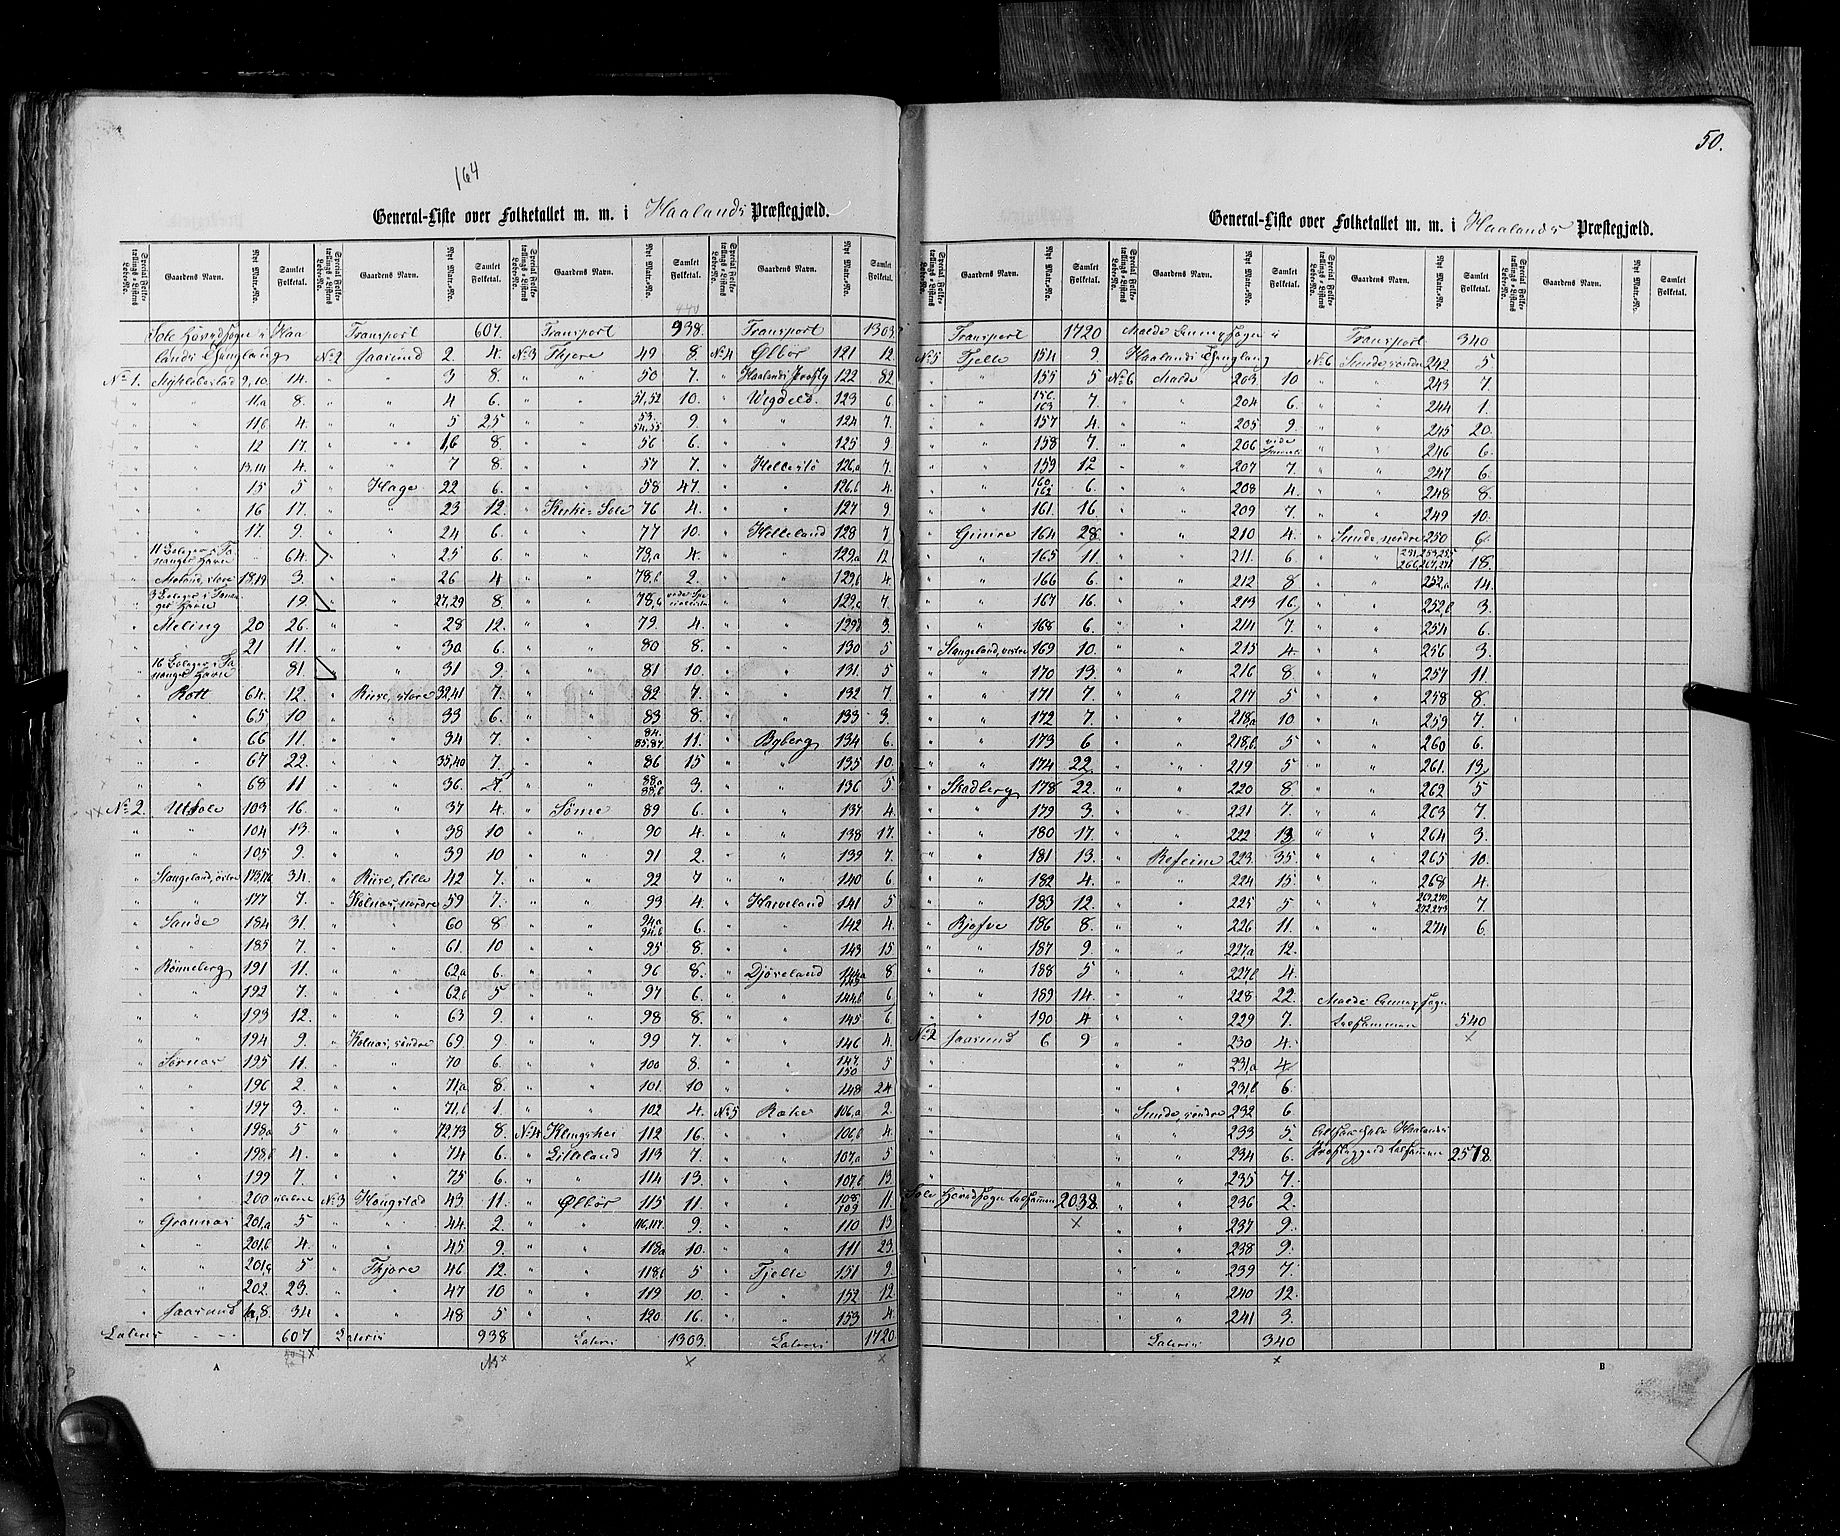 164
General-Liste over Folketallet m. m. i Haalands Præstegjæld.
Special Folketællings-Listens Løbe-No. Gaardens Navn. Nyt Matr.-No. Samlet Folketal. Special Folketællings-Listens Løbe-No. Gaardens Navn. Nyt Matr.-No. Samlet Folketal. Special Folketællings-Listens Løbe-No. Gaardens Navn. Nyt Matr.-No. Samlet Folketal. Special Folketællings-Listens Løbe-No. Gaardens Navn. Nyt Matr.-No. Samlet Folketal.
Sole Hovedsogn i Haa
lands Thinglaug
No 1. Myklebostad 9,10. 14.
" " 11,a 8.
" " 11,b 4.
" " 12 17.
" " 13,14 4.
" " 15 5
" " 16 17.
" " 17. 9.
64.
18,19 3.
19.
" Meling 20 26.
" " 21 11.
81.
" Rott 64. 12.
" " 65 10
" " 66 11.
" " 67 22.
" " 68 11
No 2. Utsole 103 16
" " 104 13.
" " 105 9.
" Stangeland, østre 34.
" " 177 7.
" Sande 184 31.
" " 185 7.
" Rønneberg 191 11.
" " 192 7.
" " 193 12.
" " 194 9.
" Sørnæs 195 11.
" " 196 2.
" " 197 3.
" " 198,a 5
" " 198,b 4.
" " 199 7.
" " 200
" Grannæs 201,a 5
" " 201,b 4.
" " 5
" " 202. 23.
" Jaasund 34
Lateris 607
Transport 607.
No 2 Jaasund 2. 4.
" " 3 8.
" " 4 6.
" " 5 25
" " 1,6 8.
" " 7 8.
" Hage 22 6.
" " 23 12.
" " 24 6.
" " 25 6.
" " 26 4
" " 27,29 8.
" " 28 12.
" " 30 6.
" " 31 9.
" Riise, store 32,41 7.
" " 33 6.
" " 34 7.
" " 35,40 7.
" " 36.
" " 37 4.
" " 38 10
" " 39 10
" Riise, lille 42 7.
" Kolnæs, nordre 59 7.
" " 60 8.
" " 61. 10
" " 62,a 6.
" " 62,b 5
" " 63 9.
" Kolnæs, søndre 69 9.
" " 70 6.
" " 71,a 8.
" " 71,b 1.
" " 72,73 8.
" " 74 6.
" " 75 6.
No 3 Haugstad 43. 11.
" " 44. 2.
" " 45 9.
" Thjore 46 12.
" " 47 10
" " 48 5
Lateris 938
Transport 938.
No 3 Thjore 49 8.
" " 50 7.
" " 51,52 10.
" " 53. 54,55 9.
" " 56 6.
" " 57 7.
" " 58 47.
" Kirke-Sole 76 4.
" " 77 10.
" " 78,a 4.
" " 78,b 2.
" " 78,c
" " 79. 4.
" " 80 8.
" " 81 10.
" " 82 7.
" " 83 8.
" " 84. 85,87 11.
" " 86 15
" " 88,a 88,b 3.
" Sømme 89 6.
" " 90 4.
" " 91 2.
" " 92 7
" " 93 4.
" " 94,a 94,b 6.
" " 95 8.
" " 96 8.
" " 97 6.
" " 98 8.
" " 99 7.
" " 100 8.
" " 101. 10
" " 102 4.
No 4 Klingshei 112 16.
" Lilleland 113 7.
" " 114 13.
" Ølbør 115 11.
" " 116,117. 9.
" " 118,a 10.
" " 118,b 5
" " 119 10.
" " 120 16.
Lateris 1303.
Transport 1303
No 4 Ølbør 121 12.
" Haalands Præstg 122 82
" Wigdels. 123 6
" " 124 7.
" " 125 9
" Hellestø 126,a 7.
" " 126,b 4.
" " 127 9
" Helleland 128 7
" " 129,a 12
" " 129,b 4.
" " 129,c 7.
" " 129,d 3.
" " 130 5
" " 131. 5
" " 132 7
" " 133 3.
" Byberg 134 6.
" " 135 10.
" " 136 5
" " 137 4.
" " 138 17.
" " 139 7.
" " 140 6.
" Haveland 141 5
" " 142 4.
" " 143 15
" Djøveland 144,a 8.
" " 144,b 6.
" " 145 6
" " 146 4.
" " 147. 150 5
" " 148 24
No 5 Ræke 106,a 2.
" " 106,b 4.
" " 107,a 5
" " 107,b 13.
" " 108 109 11.
" " 110 13
" " 111 23.
" Tjelle 151 9.
" " 152 12
" " 153 4.
Lateris 1720
A
50.
General-Liste over Folketallet m. m. i Haalands Præstegjæld.
Special Folketællings-Listens Løbe-No. Gaardens Navn. Nyt Matr.-No. Samlet Folketal. Special Folketællings-Listens Løbe-No. Gaardens Navn. Nyt Matr.-No. Samlet Folketal. Special Folketællings-Listens Løbe-No. Gaardens Navn. Nyt Matr.-No. Samlet Folketal. Special Folketællings-Listens Løbe-No. Gaardens Navn. Nyt Matr.-No. Samlet Folketal.
Transport 1720
No 5 Tjelle 154 9
" " 155 5
" " 156. 163 7.
" " 157 4.
" " 158 7.
" " 159 12
" " 160. 162 6.
" " 161. 16
" Gimre 164 28
" " 165 11.
" " 166 6.
" " 167 16.
" " 168 6.
" Stangeland, vestre 169 10.
" " 170 13.
" " 171 7.
" " 172 7.
" " 173 6
" " 174 22.
" Skadberg 178 22.
" " 179 3.
" " 180 17.
" " 181 13.
" " 182 4.
" " 183 12.
" Rjofve 186 8.
" " 187 9.
" " 188 5
" " 189 14.
" " 190 4
No 2 Jaasund 6 9
Sole Hovedsogn tilsammen 2038.
Malde Annexsogn i
Haalands Thinglaug
No 6 Malde 203 10
" " 204 6.
" " 205 9.
" " 206 vide
" " 207 7.
" " 208 4.
" " 209 7.
" " 210 4.
" " 211. 6
" " 212 8
" " 213 16.
" " 214 7.
" " 215 4.
" " 216 8
" " 217 5
" " 218,a 10
" " 218,b 5
" " 219 5
" " 220 8.
" " 221 7.
" " 222 13
" Refseime 223. 35.
" " 224 15.
" " 225 5
" " 226 11.
" " 227,a 12.
" " 227,b 4.
" " 228 22.
" " 229 7.
" " 230 4.
" " 231,a 4
" " 231,b 6.
" Sunde, søndre 232 6.
" " 233 5.
" " 234 6.
" " 235 7.
" " 236 2.
" " 237 9.
" " 238 9.
" " 239 7.
" " 240 12.
" " 241 3.
Lateris 340
Transport 340
No 6 Sunde søndre 242 5
" " 243 7.
" " 244 1.
" " 245 20.
" " 246 6.
" " 247 6.
" " 248 8.
" " 249 10.
" Sunde, nordre 250 6.
" " 18.
" " 252,a 14.
" " 252,b 3.
" " 254 6.
" " 256 3.
" " 257 11.
" " 258 8.
" " 259 7.
" " 260 6.
" " 261. 13
" " 262 5
" " 263 7.
" " 264 3.
" " 265 10.
" " 268 4.
" " 7.
" " 274 6.
Malde Annexsogn
tilsammen 540
Haalands
Præstegjæld tilsammen 2578.
B